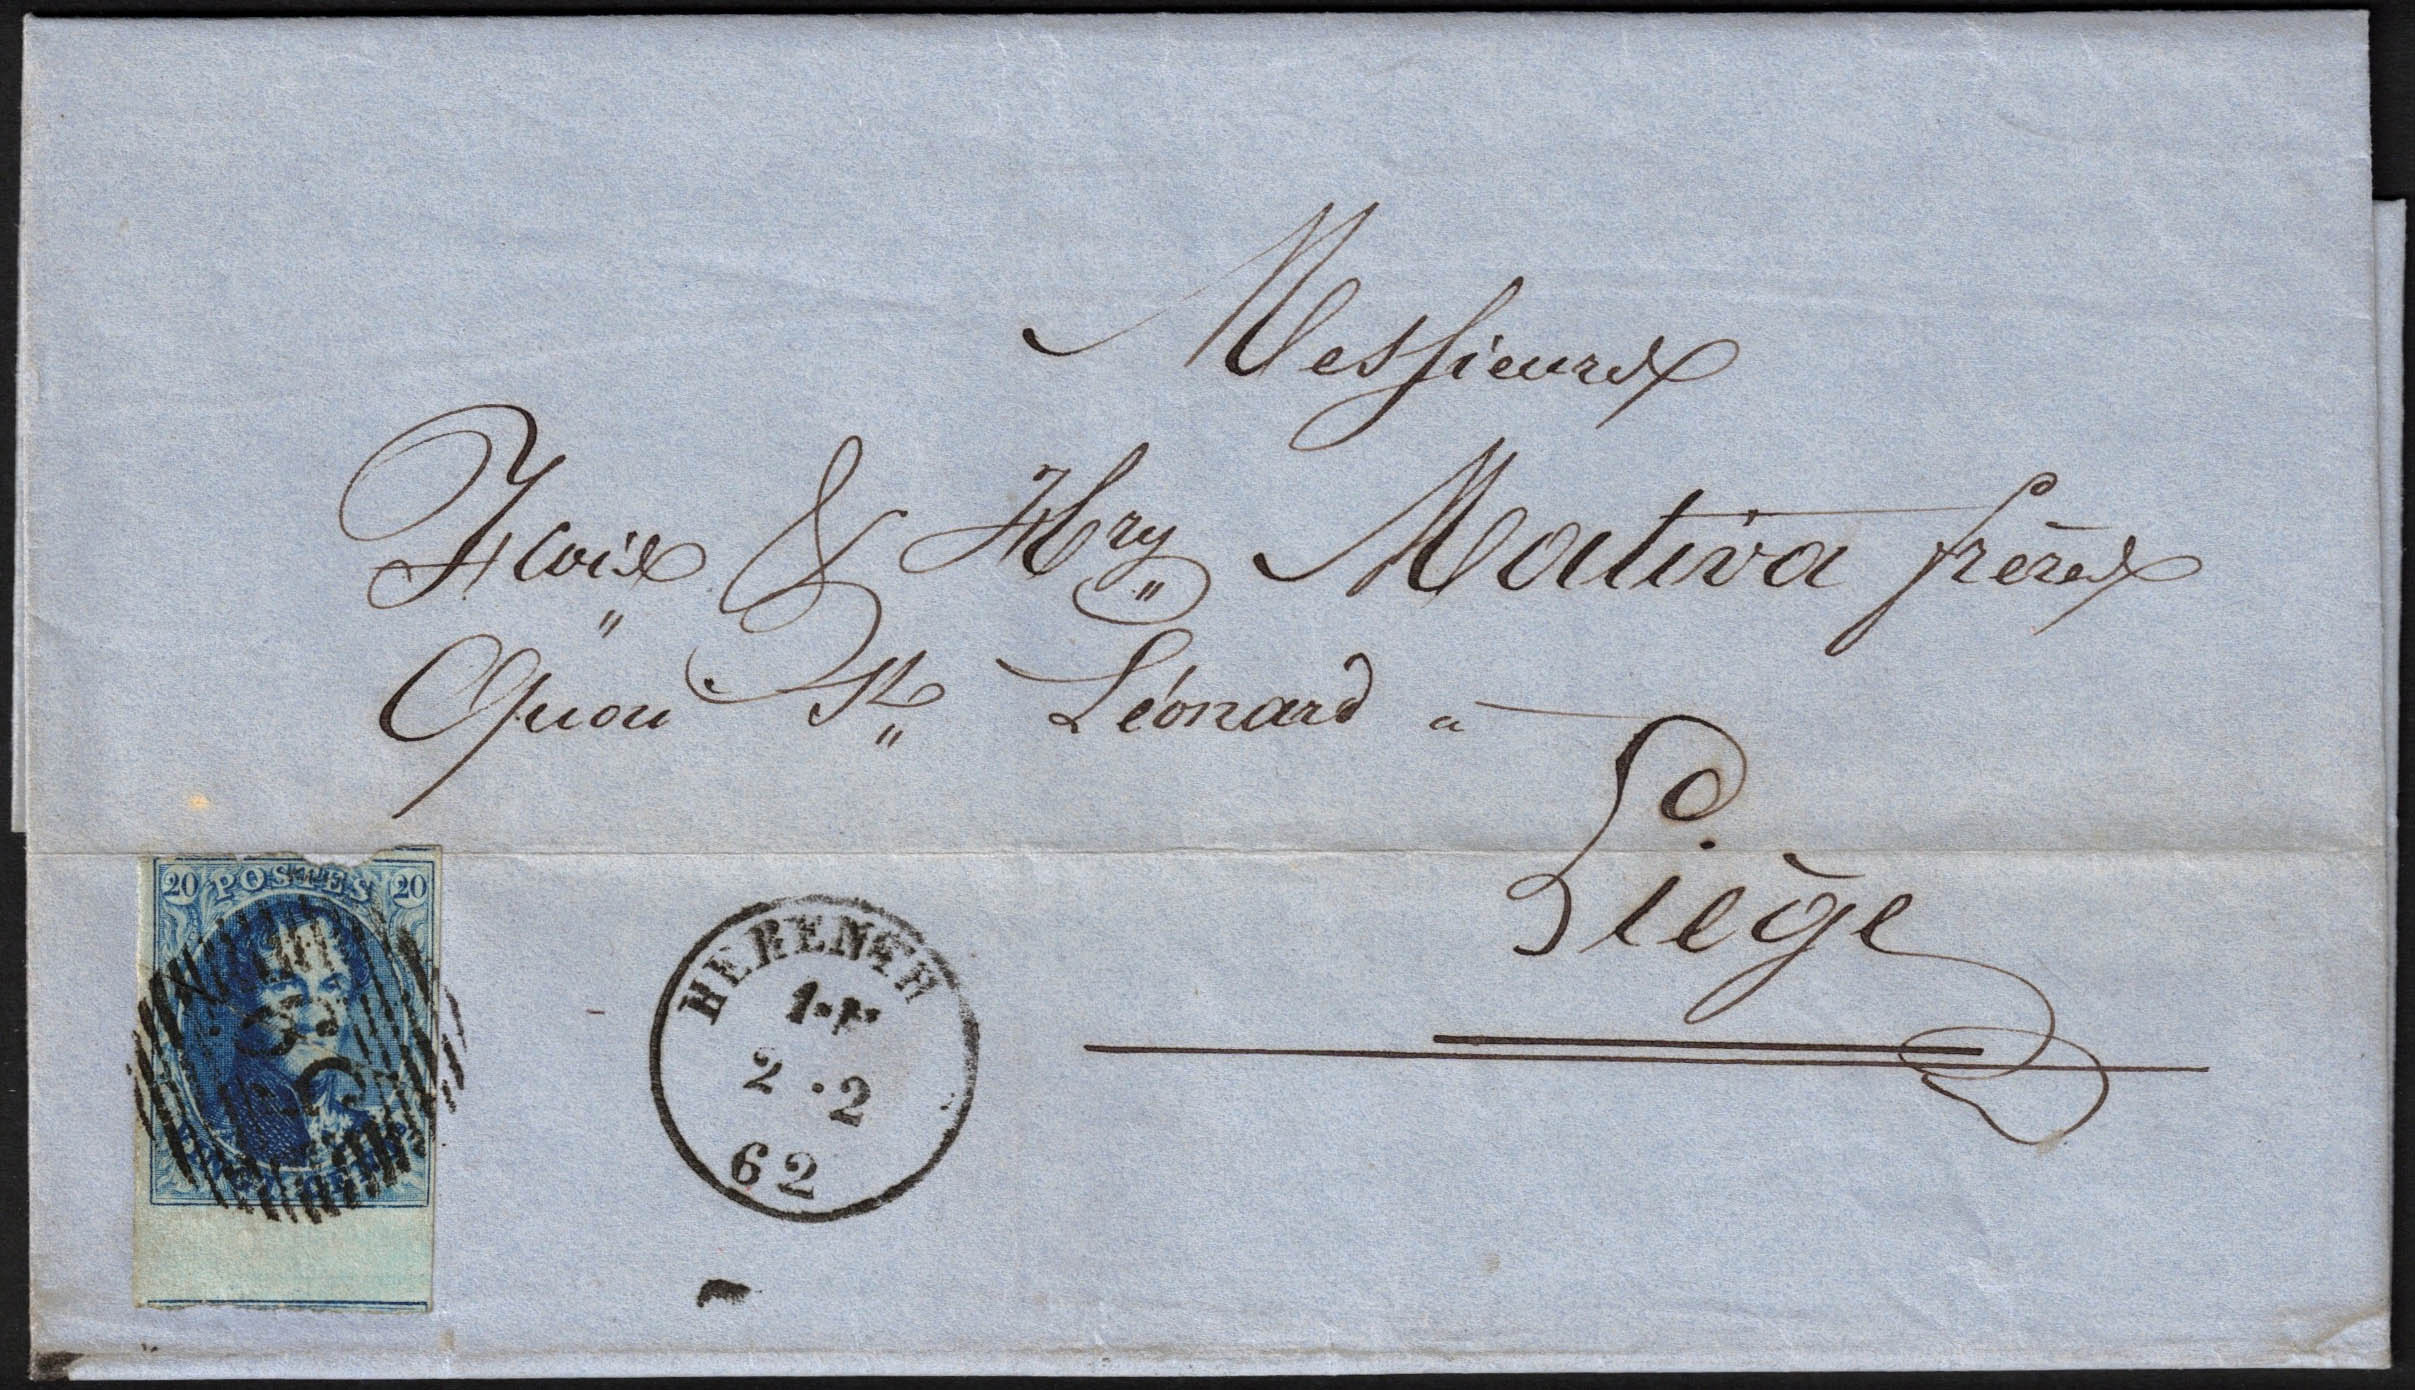 Messieurs
Fçois & Hry Mativa frères
Quai St Léonard à
Liège
20 POSTES 20
HERENTH
2 · 2
62